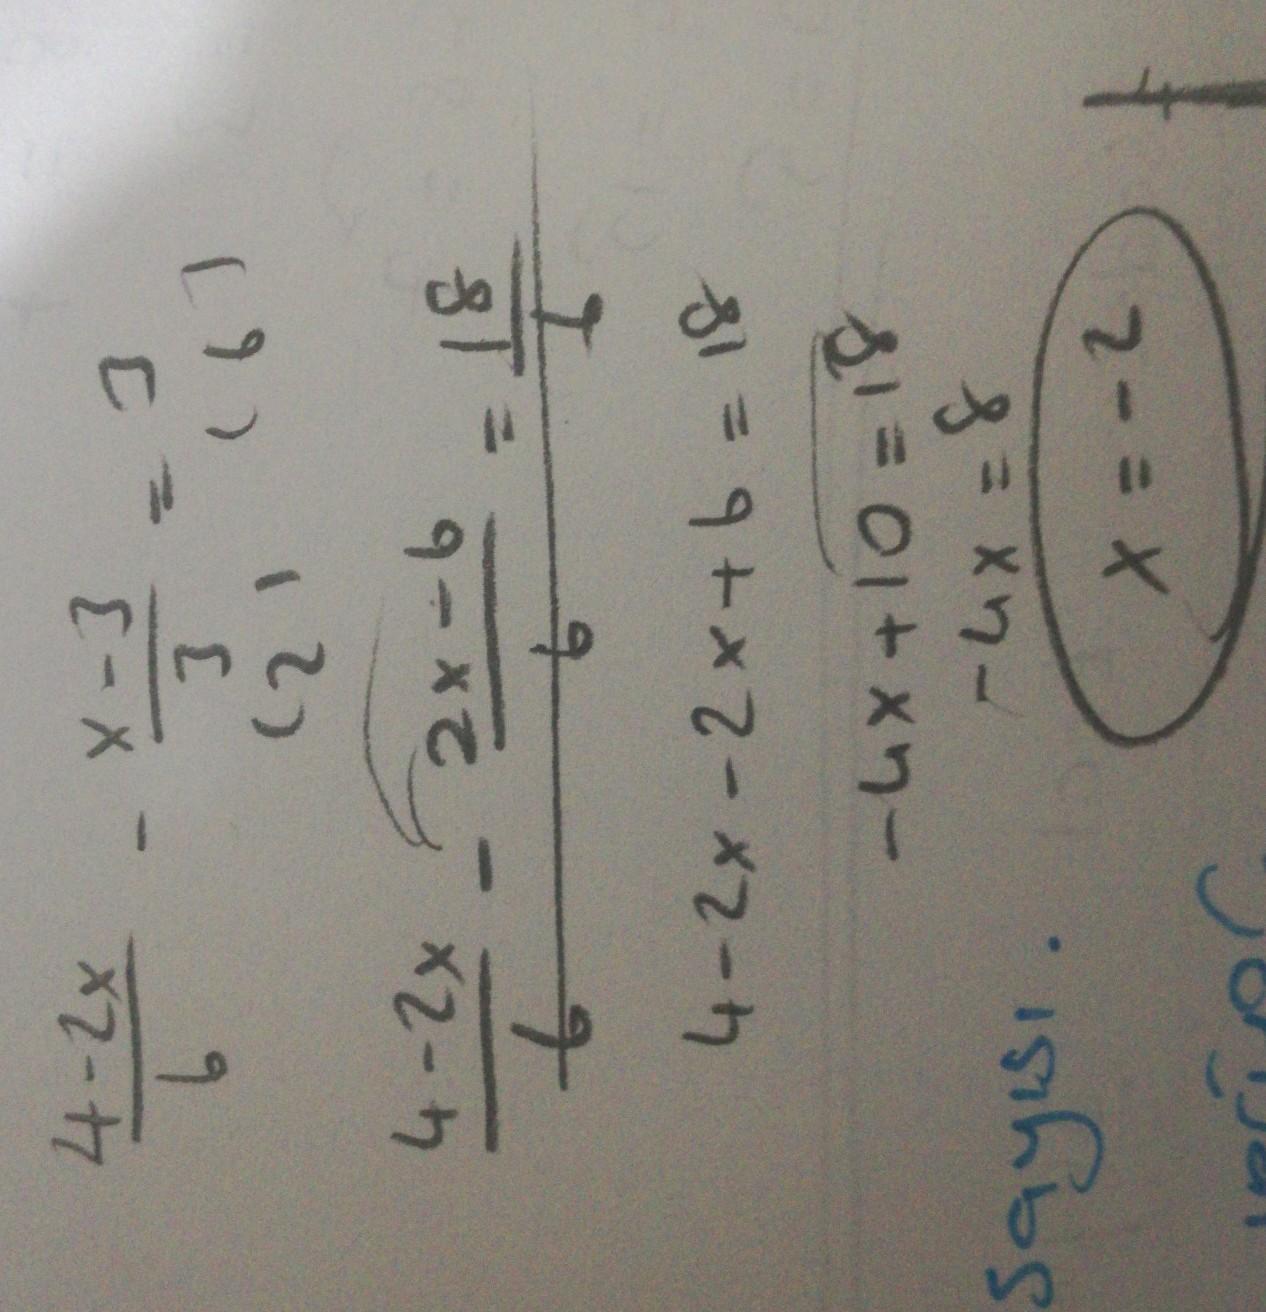 4-2x/6 - x-3/3 = 3
(2) (6)
4-2x/6 - 2x-6/6 = 18/6
4-2x-2x+6 = 18
-4x+10=18
-4x=8
x=-2
sayısı.